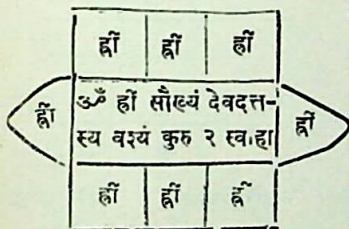 ह्रीं ह्रीं ह्रीं
ह्रीं
ॐ ह्रीं सौख्यं देवदत्त-
स्य वश्यं कुरु २ स्वाहा
ह्रीं
ह्रीं ह्रीं ह्रीं